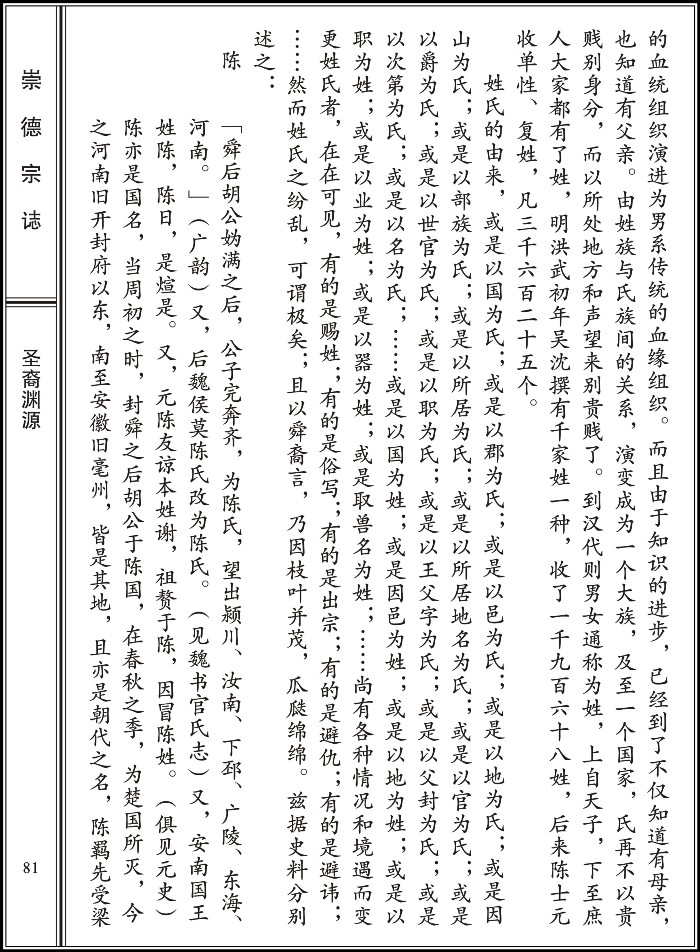 的血统组织演进为男系传统的血缘组织。而且由于知识的进步，已经到了不仅知道有母亲，
也知道有父亲。由姓族与氏族间的关系，演变成为一个大族，及至一个国家，氏再不以贵
贱别身分，而以所处地方和声望来别贵贱了。到汉代则男女通称为姓，上自天子，下至庶
人大家都有了姓，明洪武初年吴沈撰有千家姓一种，收了一千九百六十八姓，后来陈士元
收单性、复姓，凡三千六百二十五个。
姓氏的由来，或是以国为氏；或是以郡为氏；或是以邑为氏；或是以地为氏；或是因
山为氏；或是以部族为氏；或是以所居为氏；或是以所居地名为氏；或是以官为氏；或是
以爵为氏；或是以世官为氏；或是以职为氏；或是以王父字为氏；或是以父封为氏；或是
以次第为氏；或是以名为氏；……或是以国为姓；或是因邑为姓；或是以地为姓；或是以
职为姓；或是以业为姓；或是以器为姓；或是取兽名为姓；……尚有各种情况和境遇而变
更姓氏者，在在可见，有的是赐姓；有的是俗写；有的是出宗；有的是避仇；有的是避讳；
……然而姓氏之纷乱，可谓极矣；且以舜裔言，乃因枝叶并茂，瓜瓞绵绵。兹据史料分别
述之：
陈
「舜后胡公妫满之后，公子完奔齐，为陈氏，望出颍川、汝南、下邳、广陵、东海、
河南。」（广韵）又，后魏侯莫陈氏改为陈氏。（见魏书官氏志）又，安南国王
姓陈，陈日，是煊是。又，元陈友谅本姓谢，祖赘于陈，因冒陈姓。（俱见元史）
陈亦是国名，当周初之时，封舜之后胡公于陈国，在春秋之季，为楚国所灭，今
之河南旧开封府以东，南至安徽旧亳州，皆是其地，且亦是朝代之名，陈羁先受梁
崇德宗誌
圣裔渊源
81